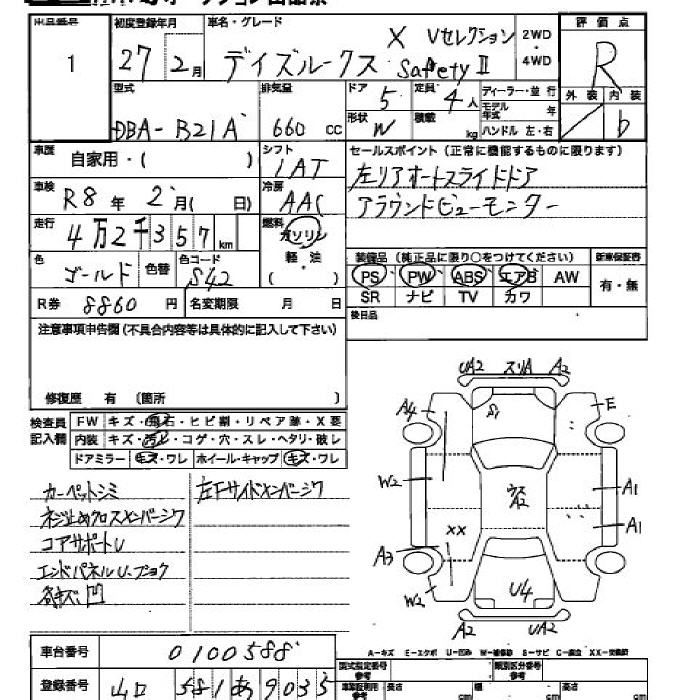 出品番号 初度登録年月 車名・グレード 評価点
1 27年2月 デイズルークス X Vセレクション Safety II 2WD・4WD R
型式 DBA-B21A 排気量 660 cc ドア 5 定員 4人 ディーラー・並行
形状 W 積載 kg モデル年式 年 ハンドル 左・右
外装 内装 b
車歴 自家用・( ) シフト IAT セールスポイント(正常に機能するものに限ります)
車検 R8年2月( 日) 冷房 AAC 左リアオートスライドドア
アラウンドビューモニター
走行 4万2千357km 燃料 ガソリン
軽・油
( )
色 ゴールド 色替 色コード S42
装備品(純正品に限り○をつけてください) 新車保証書
PS PW ABS エアB AW 有・無
SR ナビ TV カワ
R券 8860円 名変期限 月 日
後日品
注意事項申告欄(不具合内容等は具体的に記入して下さい)
修復歴 有 〔箇所 〕
検査員記入欄 FW キズ・飛石・ヒビ割・リペア跡・X要
内装 キズ・汚レ・コゲ・穴・スレ・ヘタリ・破レ
ドアミラー キズ・ワレ ホイール・キャップ キズ・ワレ
カーペットシミ 左Fサイドメンバージワ
ネジ止めクロスメンバージワ
コアサポートU
エンドパネルU.プヨク
各キズ、凹
UA2 スリA A2
A4 S1 E
W2 ウスA2 A1
XX A1
A3
W2 U4
A2 UA2
A-キズ E-エクボ U-凹み W-補修跡 S-サビ C-腐食 XX-交換済
車台番号 0100588
登録番号 山口 581 あ 9035
型式指定番号 類別区分番号
長さ cm 幅 cm 高さ cm